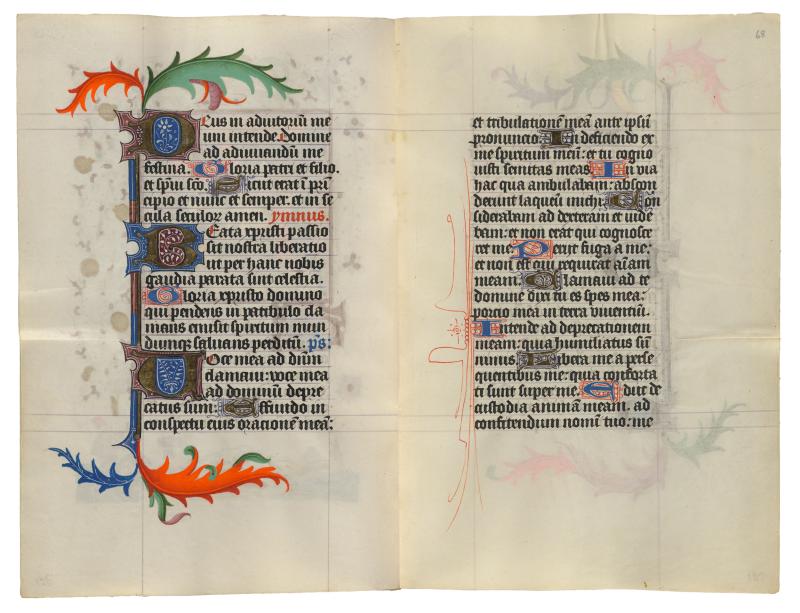 Deus in adiutoriū me
um intende. Domine
ad adiuuandū me
festina. Gloria patri et filio.
et spīui sc̄o. Sicut erat ī prī
cipio et nunc et semper. et in se
cula seculoꝛ amen. ymnus.
Beata xp̄isti passio
sit nostra liberatio
ut per hanc nobis
gaudia parata sint celestia.
Gloria xp̄isto domino
qui pendens in patibulo cla
mans emisit spiritum mun
dumqꝫ saluans perditū. ps̄:
Uoce mea ad dn̄m
clamaui: uoce mea
ad dominū depre
catus sum. Effundo in
conspectu eius oracionē meā:
68
et tribulationē meā ante ipsū
pronuncio. In deficiendo ex
me spiritum meū: et tu cogno
uisti semitas meas. In uia
hac qua ambulabam: abscon
derunt laqueū michi. Con
siderabam ad dexteram et uide
bam: et non erat qui cognosce
ret me. Perijt fuga a me:
et non est qui requirat aīam
meam. Clamaui ad te
domine dixi tu es spes mea:
porcio mea in terra viuentiū.
Intende ad deprecationem
meam: quia humiliatus sū
nimis. Libera me a perse
quentibus me: quia conforta
ti sunt super me. Educ de
custodia animam meam. ad
confitendum nomī tuo: me